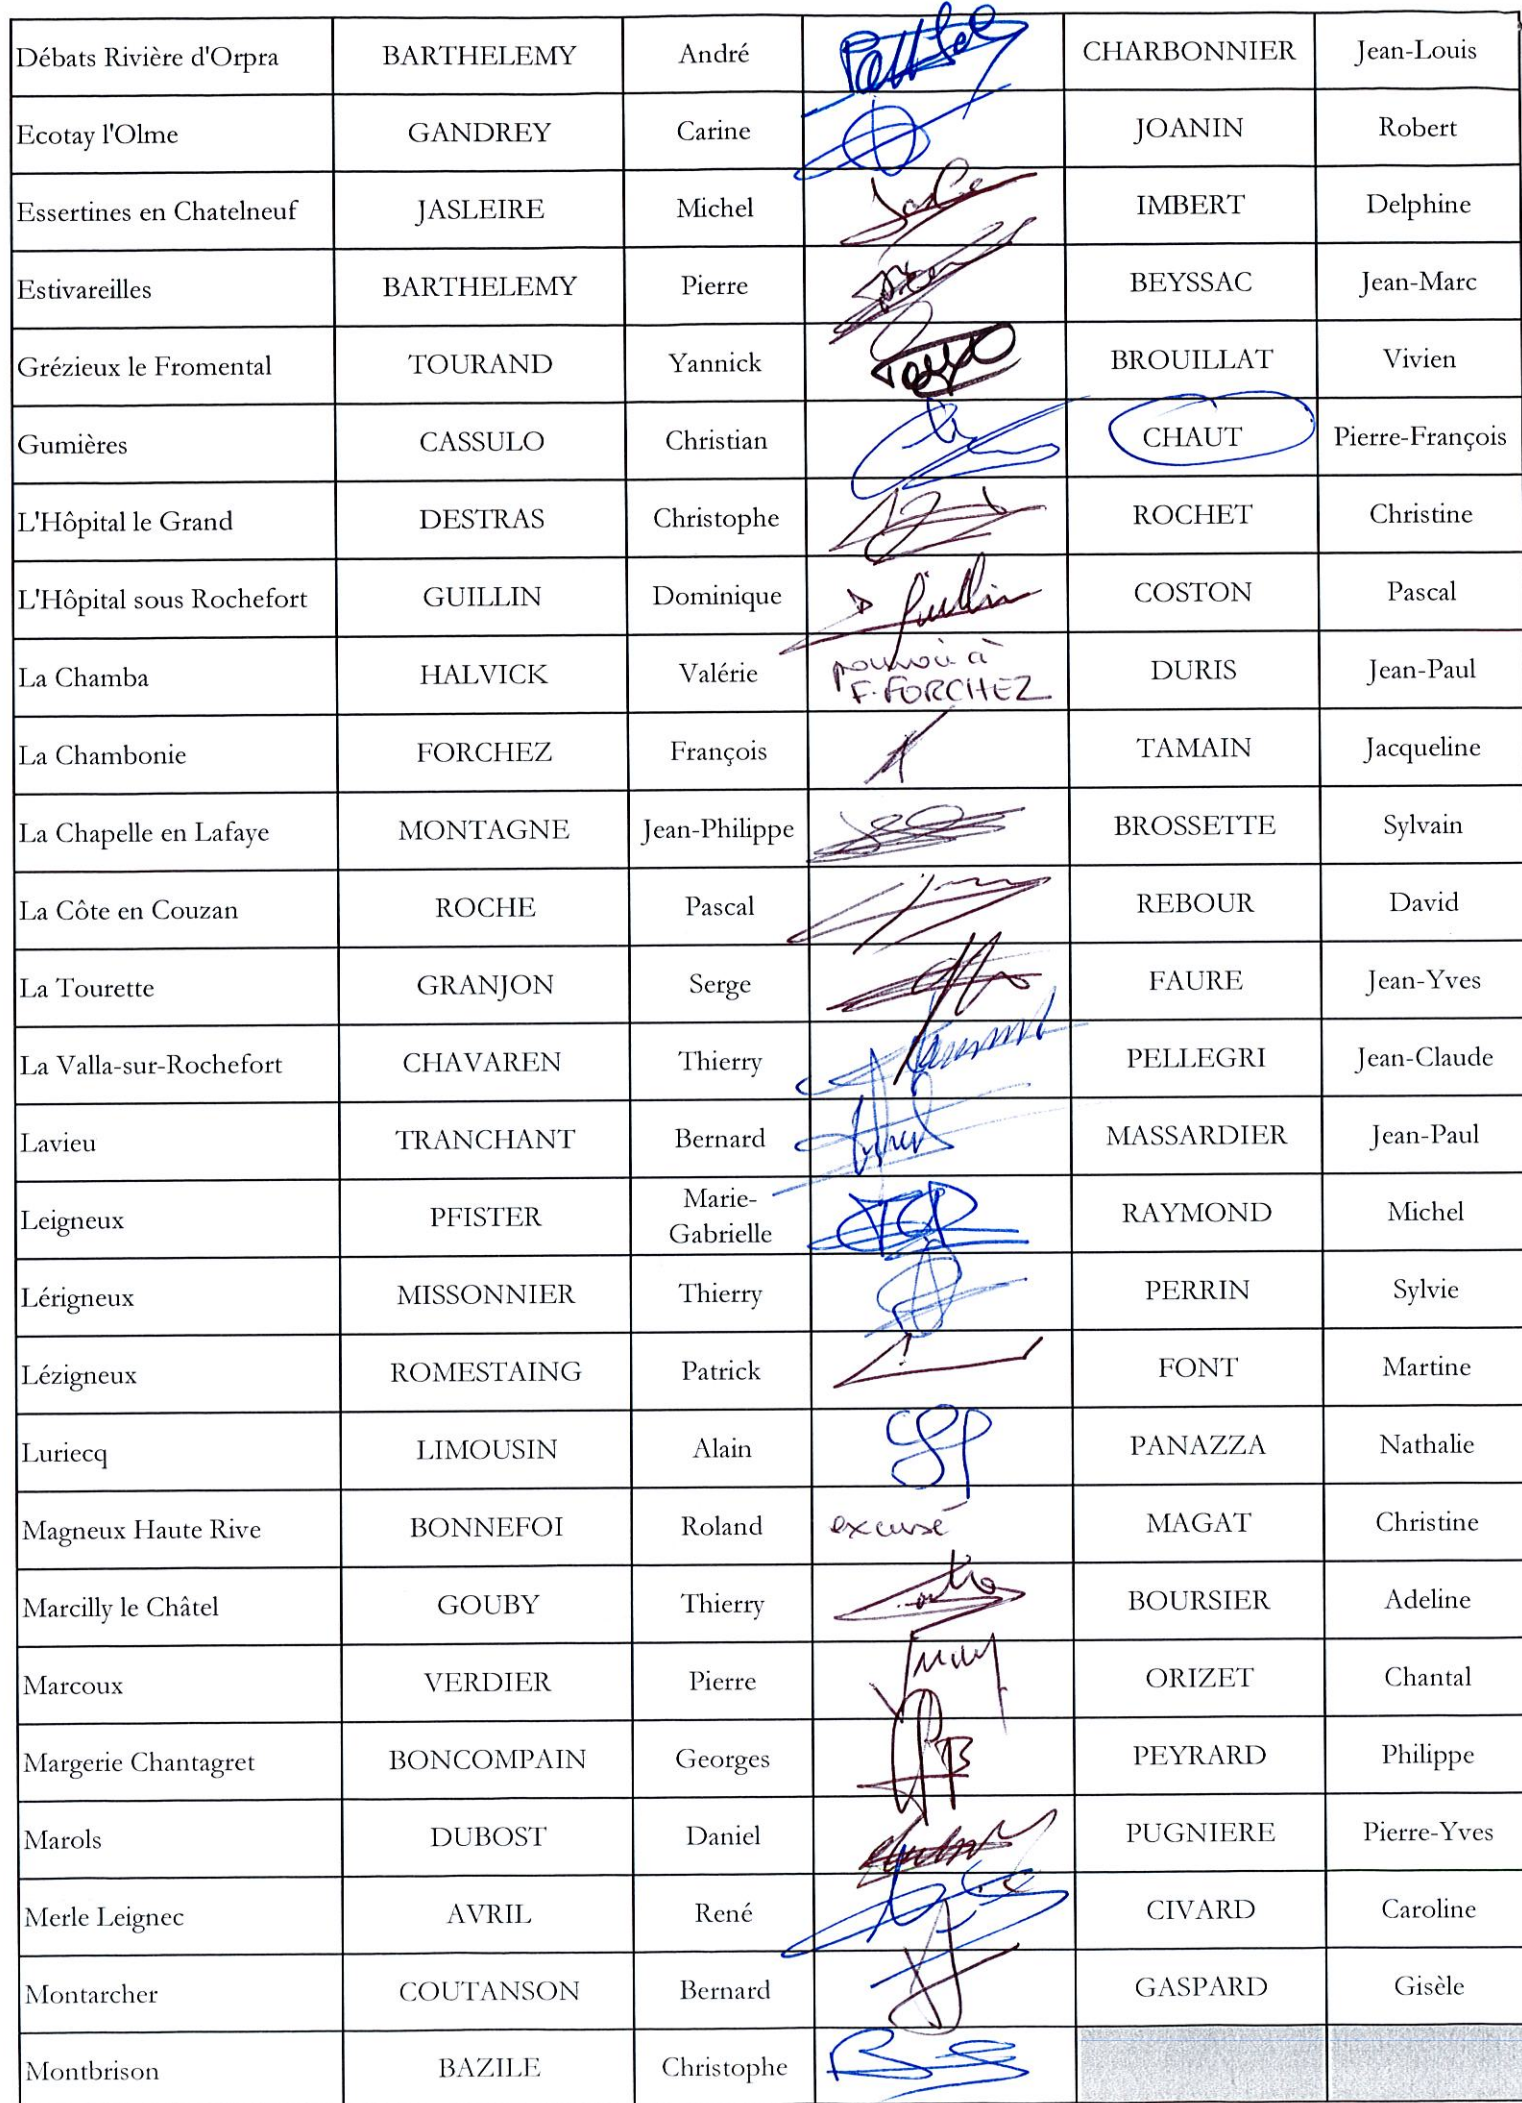 Débats Rivière d'Orpra BARTHELEMY André CHARBONNIER Jean-Louis
Ecotay l'Olme GANDREY Carine JOANIN Robert
Essertines en Chatelneuf JASLEIRE Michel IMBERT Delphine
Estivareilles BARTHELEMY Pierre BEYSSAC Jean-Marc
Grézieux le Fromental TOURAND Yannick BROUILLAT Vivien
Gumières CASSULO Christian CHAUT Pierre-François
L'Hôpital le Grand DESTRAS Christophe ROCHET Christine
L'Hôpital sous Rochefort GUILLIN Dominique D Guillin COSTON Pascal
La Chamba HALVICK Valérie pouvoir à F. FORCHEZ DURIS Jean-Paul
La Chambonie FORCHEZ François TAMAIN Jacqueline
La Chapelle en Lafaye MONTAGNE Jean-Philippe BROSSETTE Sylvain
La Côte en Couzan ROCHE Pascal REBOUR David
La Tourette GRANJON Serge FAURE Jean-Yves
La Valla-sur-Rochefort CHAVAREN Thierry PELLEGRI Jean-Claude
Lavieu TRANCHANT Bernard MASSARDIER Jean-Paul
Leigneux PFISTER Marie-Gabrielle RAYMOND Michel
Lérigneux MISSONNIER Thierry PERRIN Sylvie
Lézigneux ROMESTAING Patrick FONT Martine
Luriecq LIMOUSIN Alain PANAZZA Nathalie
Magneux Haute Rive BONNEFOI Roland excusé MAGAT Christine
Marcilly le Châtel GOUBY Thierry BOURSIER Adeline
Marcoux VERDIER Pierre ORIZET Chantal
Margerie Chantagret BONCOMPAIN Georges PEYRARD Philippe
Marols DUBOST Daniel PUGNIERE Pierre-Yves
Merle Leignec AVRIL René CIVARD Caroline
Montarcher COUTANSON Bernard GASPARD Gisèle
Montbrison BAZILE Christophe